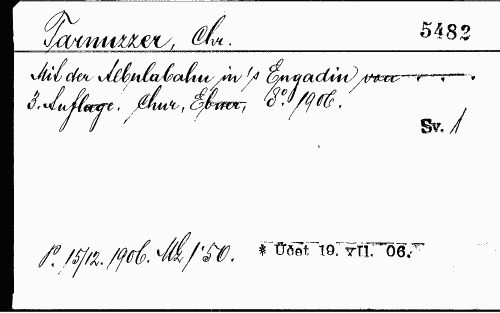 Tarnuzzer, Chr. 5482
Mit der Albulabahn in's Engadin von . . .
3. Auflage. Chur, Ebner, 8.° 1906.
Sv. 1
P. 15/12. 1906. Mk 1·50. * Udet 19. VII. 06.